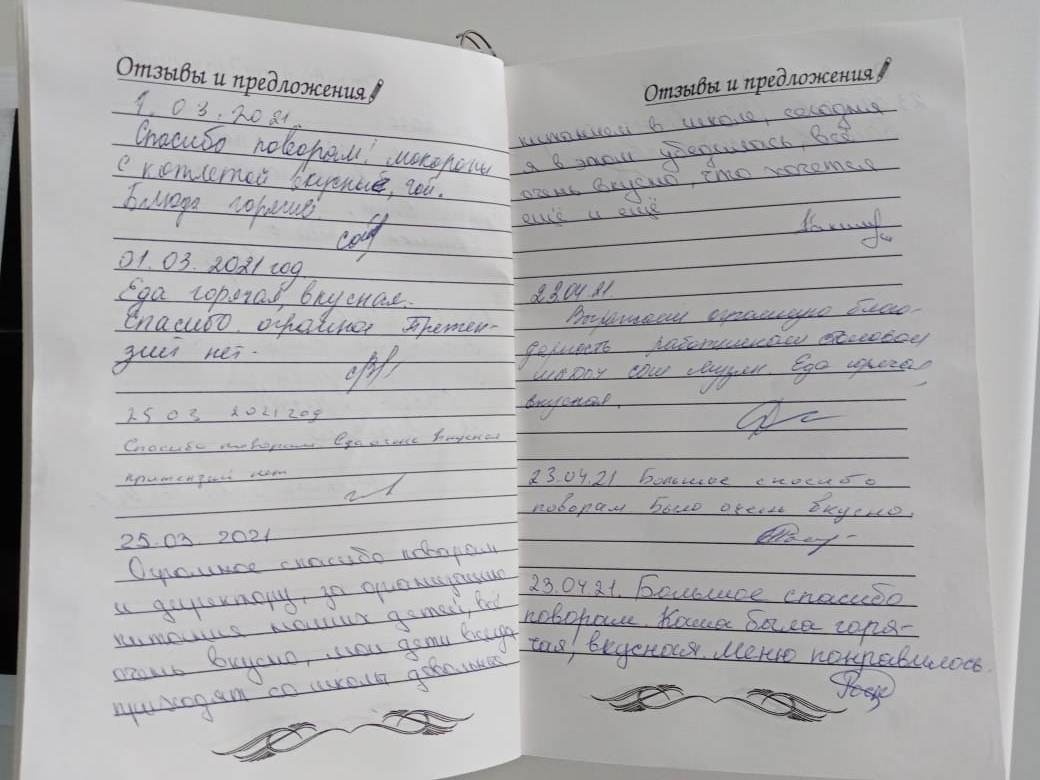 Отзывы и предложения
1. 03. 2021.
Спасибо поворам! мокароны
с котлетой вкусные, чай.
Блюда горячие.
01.03.2021 год.
Еда горячая, вкусная.
Спасибо огромное Претен-
зий нет.
25 03 2021 год
Спасибо поворам Еда очень вкусная
притензий нет
25.03. 2021
Огромное спасибо поворам
и директору, за организацию
питания наших детей, всё
очень вкусно, мои дети всегда
приходят со школы довольные
Отзывы и предложения
питанием в школе, сегодня
я в этом убедилась, всё
очень вкусно, что хочется
ещё и ещё
23.04.21.
огромную благо-
дарность работникам столовой
СОШ Еда горячая,
вкусная.
23.04.21 Большое спасибо
поворам. Было очень вкусно.
23.04.21. Большое спасибо
поворам. Каша была горя-
чая, вкусная. Меню понравилось.